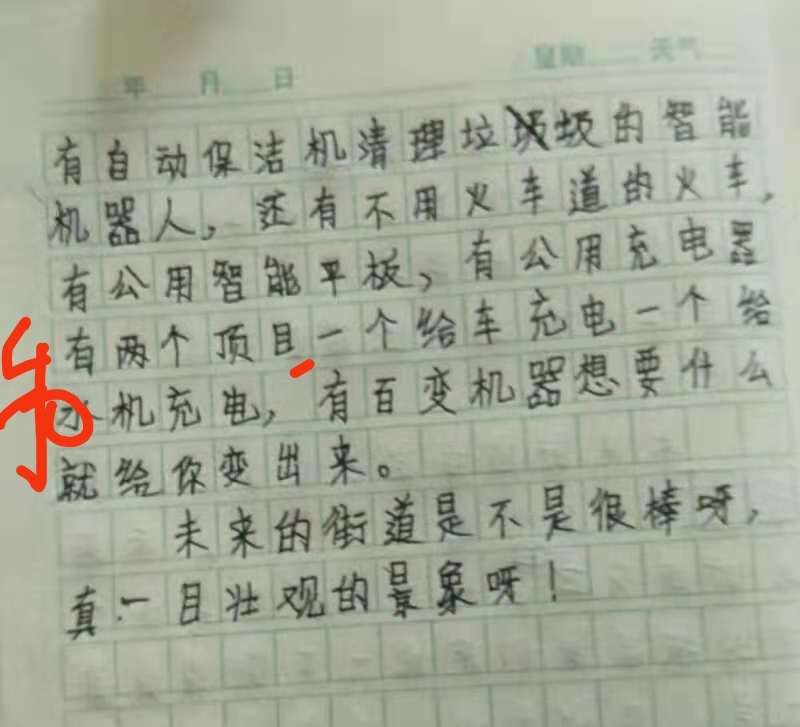 年 月 日 星期 天气
有自动保洁机清理垃圾的智能
机器人，还有不用火车道的火车，
有公用智能平板，有公用充电器
有两个顶目一个给车充电一个给
机充电，有百变机器想要什么
就给你变出来。
未来的街道是不是很棒呀，
真一目壮观的景象呀！